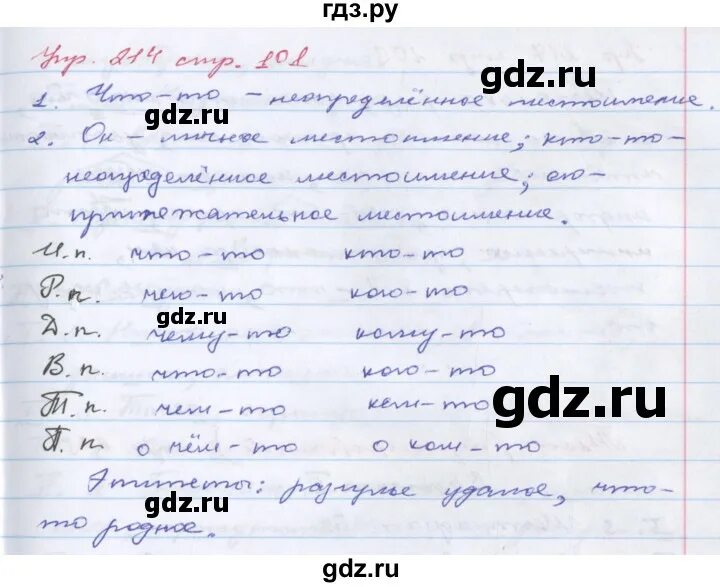 гдз.ру
Упр. 214 стр. 101
1. Что-то – неопределённое местоимение.
gdz.ru
2. Он – личное местоимение; кто-то-
неопределённое местоимение; его-
притяжательное местоимение.
И.п. что-то кого-то
Р.п. чего-то кого-то
gdz.ru
Д.п. чему-то кому-то
В.п. что-то кого-то
Т.п. чем-то кем-то
gdz.ru
П.п. о чём-то о ком-то
Эпитеты: разгулье удалое, что-
gdz.ru
то родное.
gdz.ru